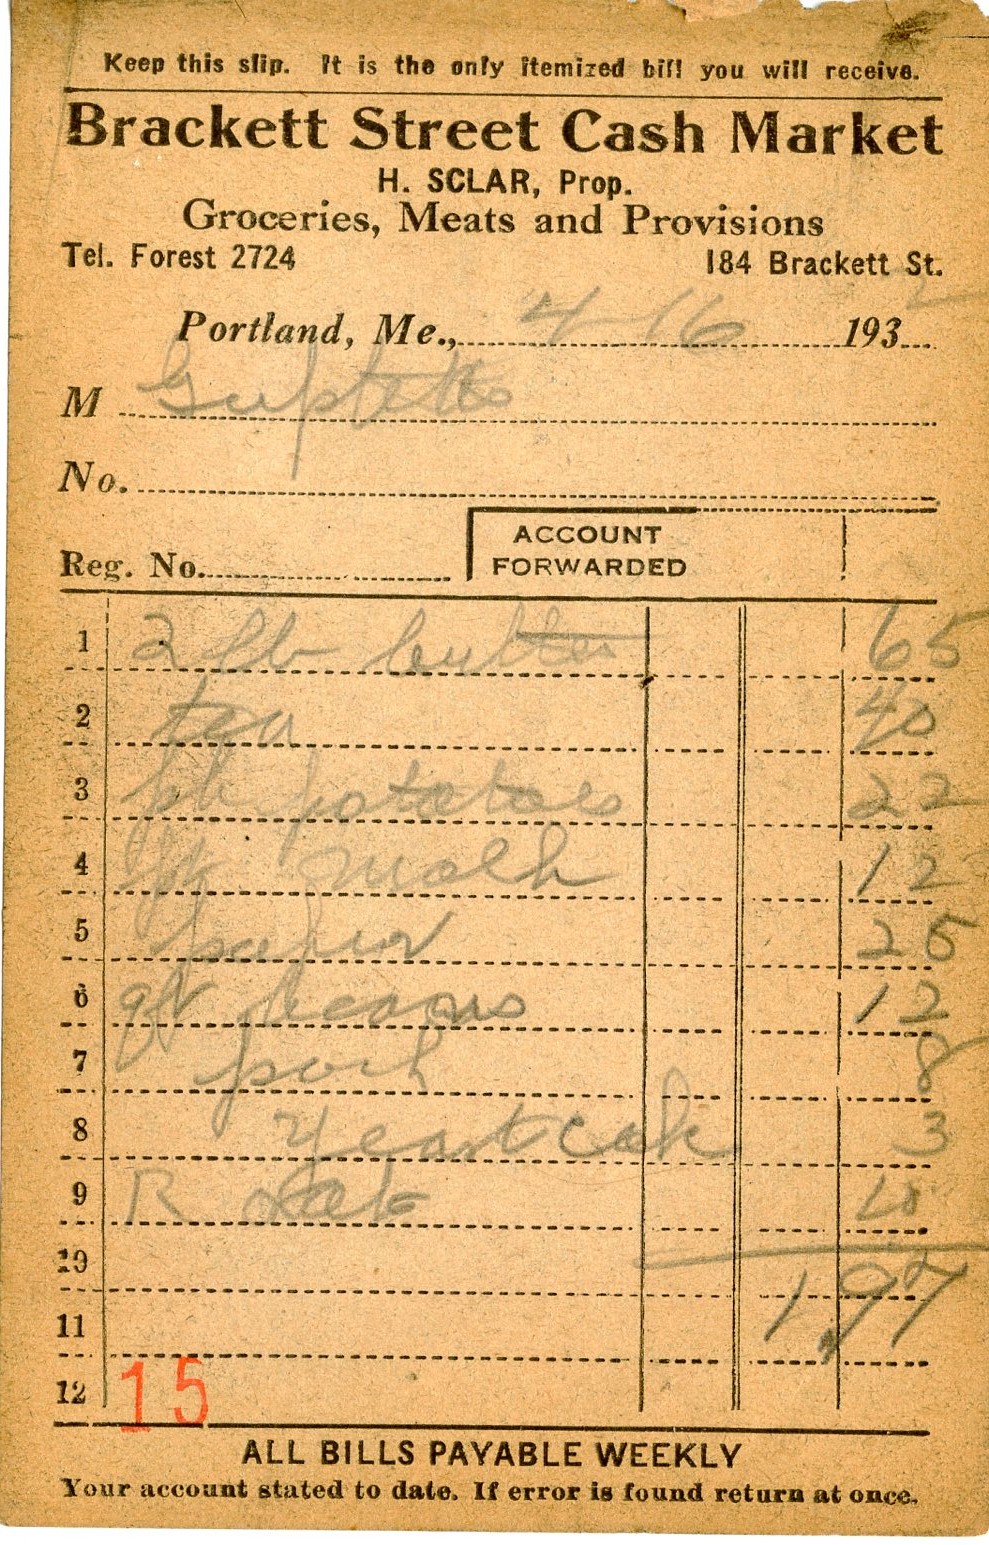 Keep this slip. It is the only itemized bill you will receive.
Brackett Street Cash Market
H. SCLAR, Prop.
Groceries, Meats and Provisions
Tel. Forest 2724 184 Brackett St.
Portland, Me., 4-16 1932
M
No.
Reg. No. ACCOUNT FORWARDED
1 2 lb butter 65
2 tea 40
3 pk potatoes 22
4 12
5 paper 25
6 qt beans 12
7 pork 8
8 Yeast cak 3
9 R 10
10
1.97
11
12 15
ALL BILLS PAYABLE WEEKLY
Your account stated to date. If error is found return at once.